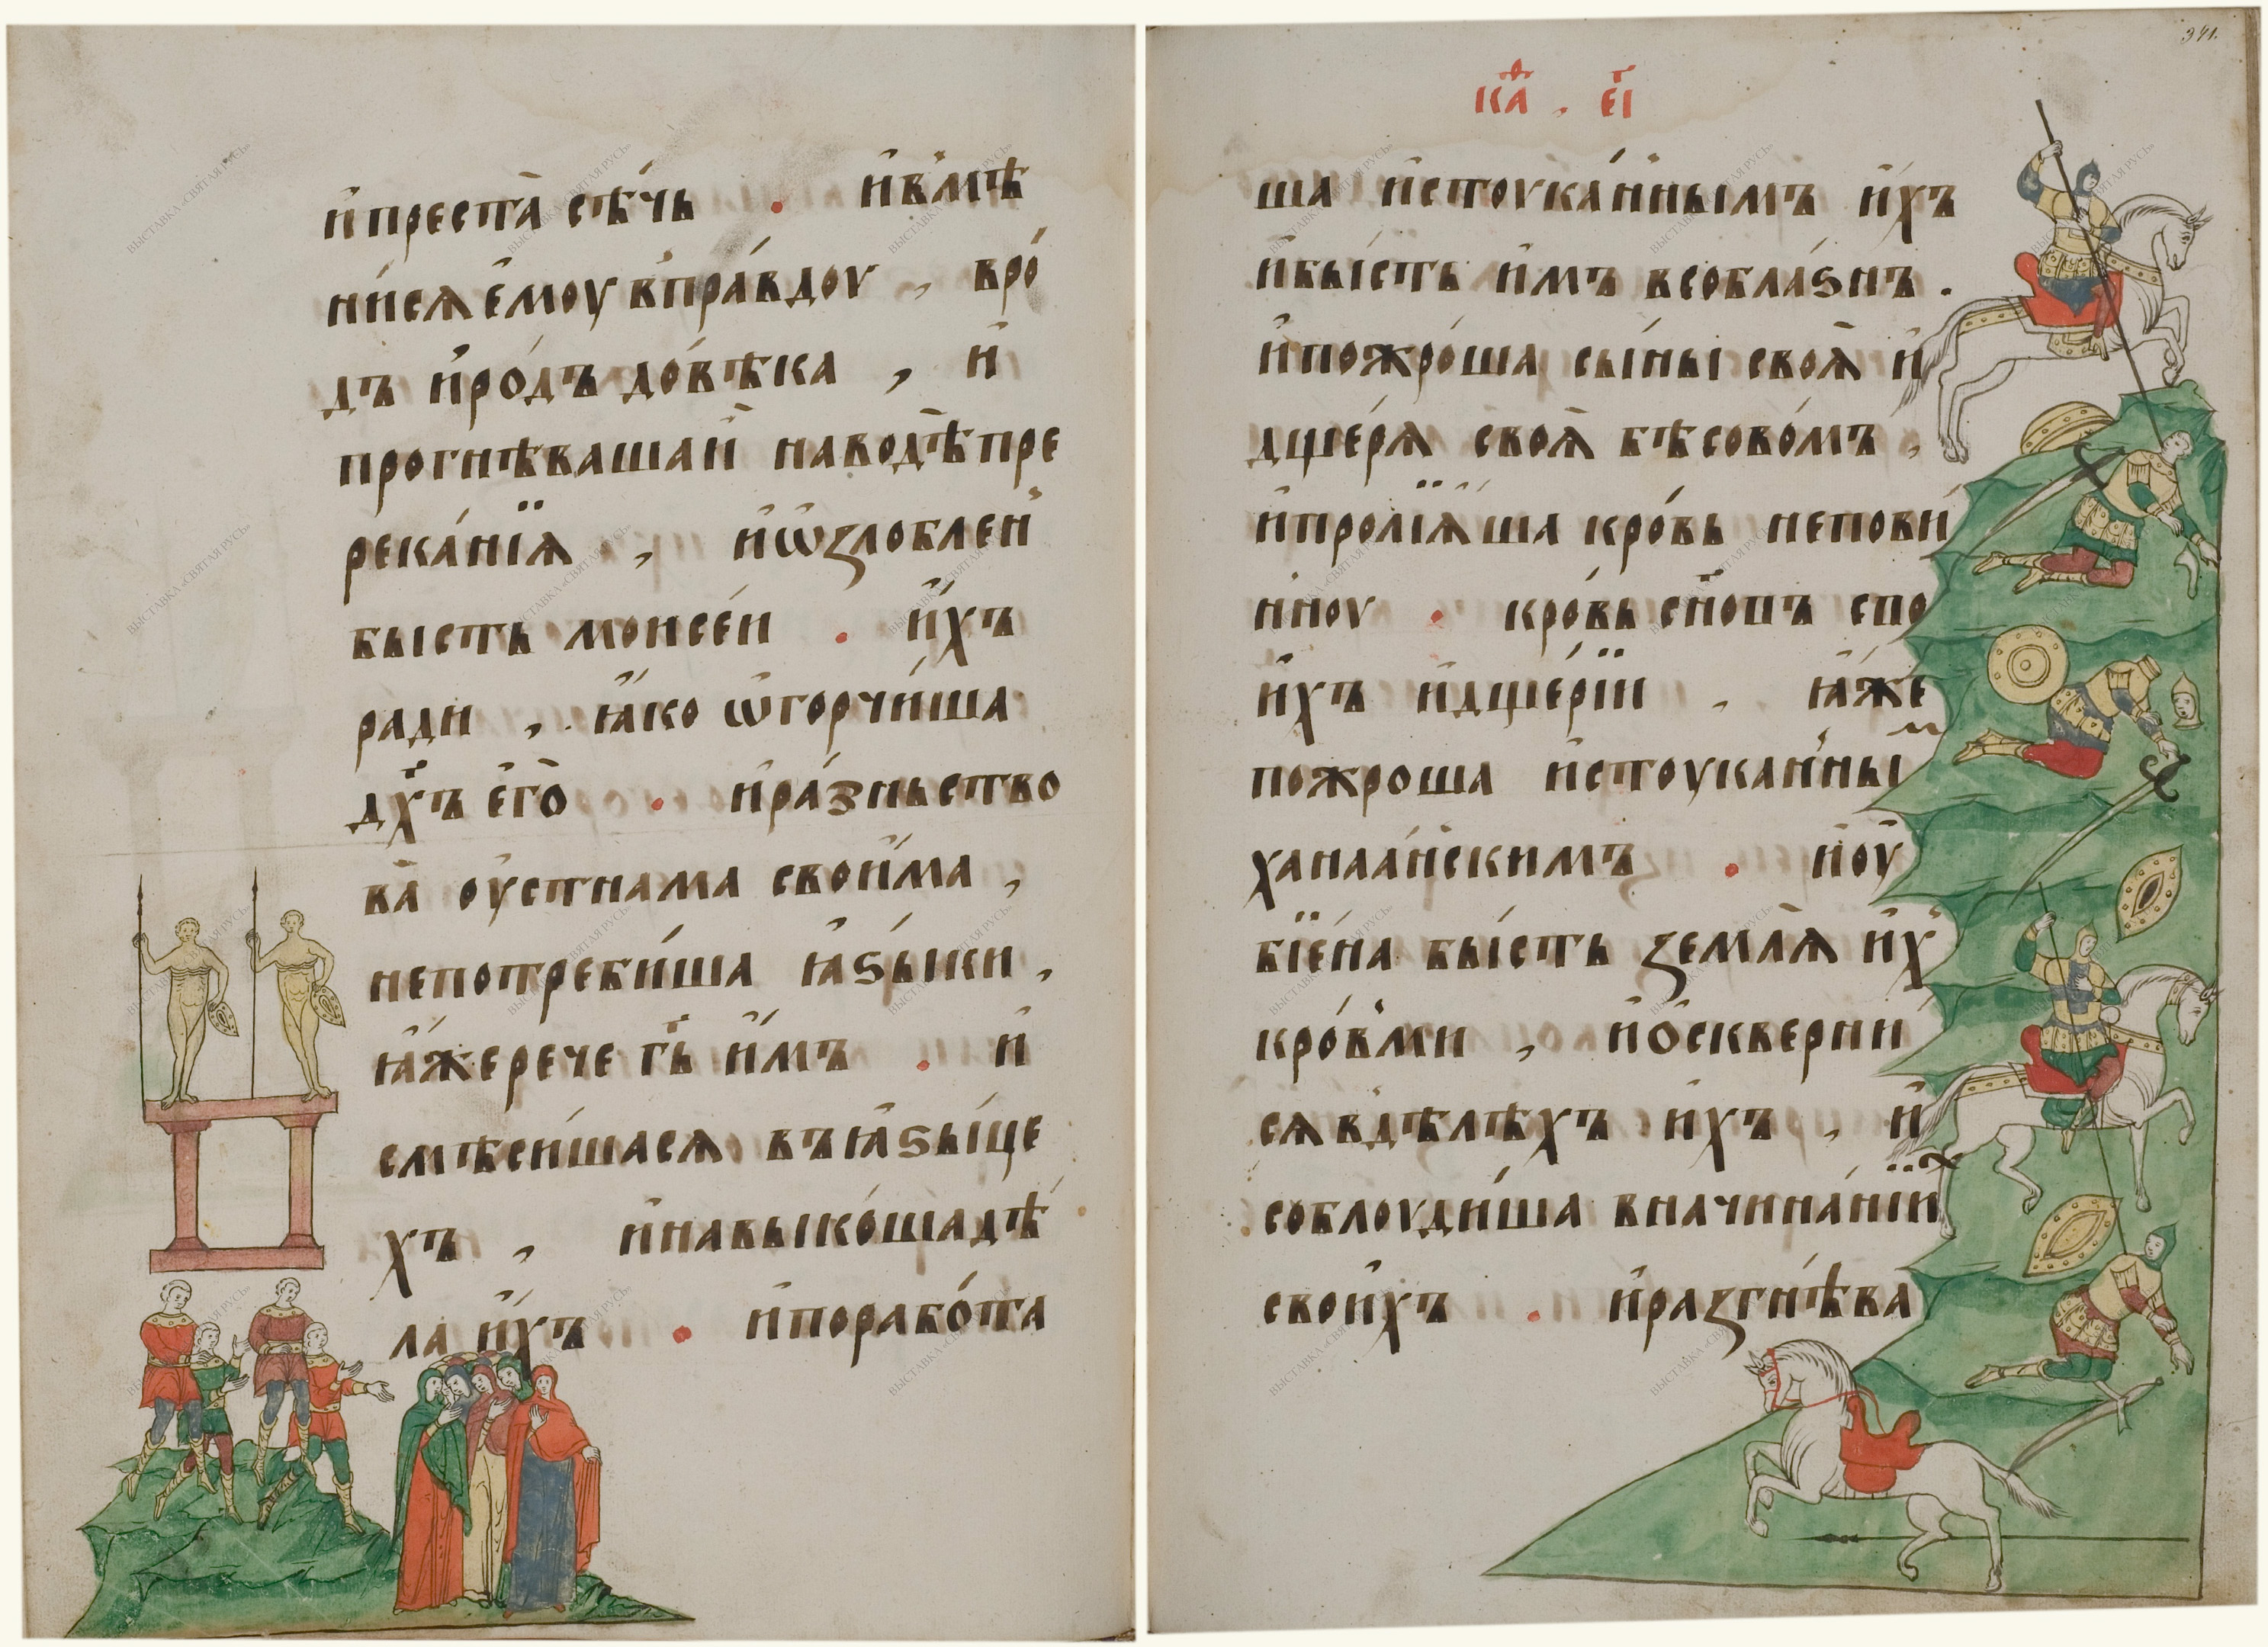 и҆преста̀ сѣ́чь . и҆вмѣ
ни́сѧ е҆моу впра́вдоу , вро́
дъ и҆ро́дъ до́вѣка , и҆
прогнѣвашаи҆ наводѣ̀ пре
река́нїѧ , и҆ѡ҆ꙁлоблен҆
бысть моисе́и . и҆́хъ
ради , ꙗ҆́ко ѡ҆горчи́ша
дх҃ъ є҆го̀ . и҆ра́зньство
ва̀ оу҆стнама свои́ма ,
непотреби́ша ꙗ҆ѕы́ки ,
ꙗ҆́же рече гь҃ и҆́мъ . и҆
смѣси́шасѧ въꙗ҆ѕы́це
хъ , и҆навыко́ша дѣ́
ла и҆́хъ . и҆порабо́та
кⷴ҇а . єі҃
341.
ша и҆стоука́ннымъ и҆́хъ
и҆бы́сть и҆́мъ всобла́ѕнъ .
и҆пожро́ша сы́ны своѧ̀ и҆
дще́рѧ своѧ̀ бѣсово́мъ ,
и҆пролїѧ́ша кро́вь непови́
нноу . кро́вь сн҃овъ сво
и҆хъ и҆дще́рїи , ꙗ҆́же
пожроша и҆стоуканныⷨ
ханаа́нскимъ . и҆оу҆
бїе́на бы́сть ꙁемлѧ̀ и҆х
кро́вми , и҆ѡ҆скверни
сѧ вдѣлѣ́хъ и҆хъ , и҆
соблоуди́ша вначина́нїиⷯ
свои҆хъ . и҆раꙁгнѣ́ва
ВЫСТАВКА «СВЯТАЯ РУСЬ»